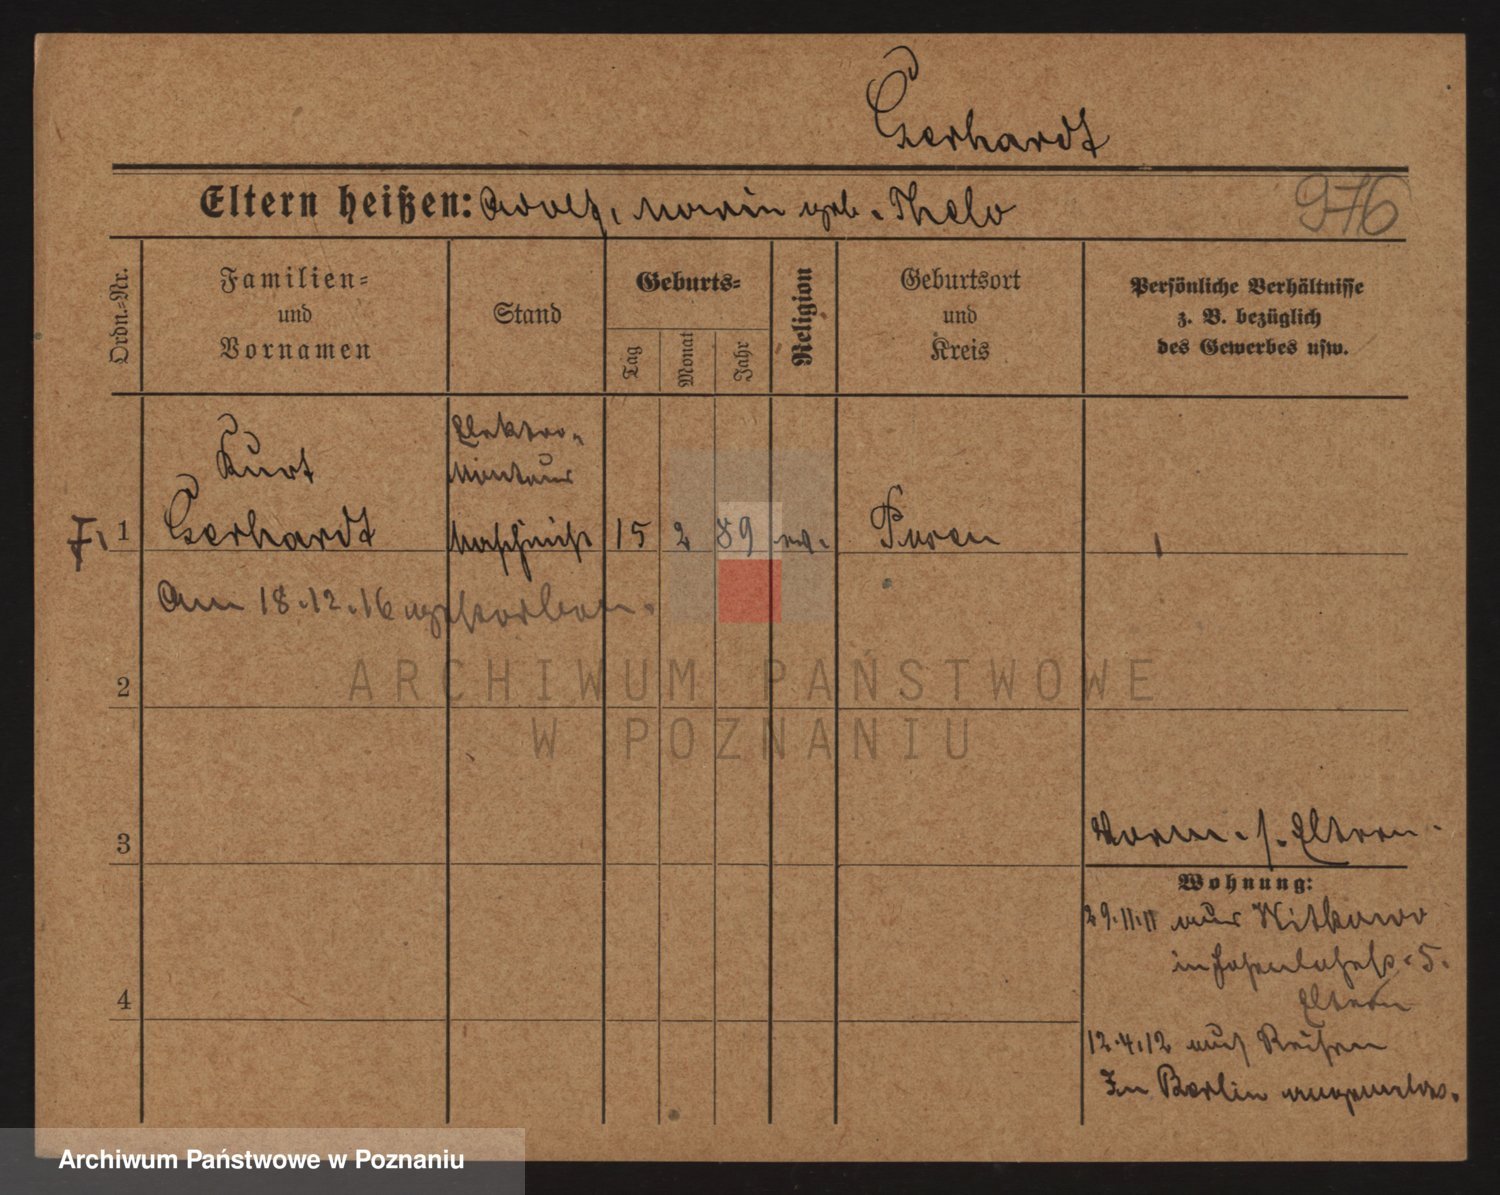 Gerhardt
Eltern heißen: Adolf, Marie geb. Thelo
976
Ordn.-Nr.
Familien-
und
Vornamen
Stand
Geburts-
Tag
Monat
Jahr
Religion
Geburtsort
und
Kreis
Persönliche Verhältnisse
z. B. bezüglich
des Gewerbes usw.
Kurt
Elektro-
Monteur
1 Gerhardt Maschinist 15 2 89 ev.
Am 18.12.16 gestorben.
2
3
4
Vorm. s. Eltern.
Wohnung:
29.11.11 aus Witkowo
5.
Eltern
12.4.12 auf Reisen
In Berlin angemeld.
ARCHIWUM PAŃSTWOWE
W POZNANIU
Archiwum Państwowe w Poznaniu